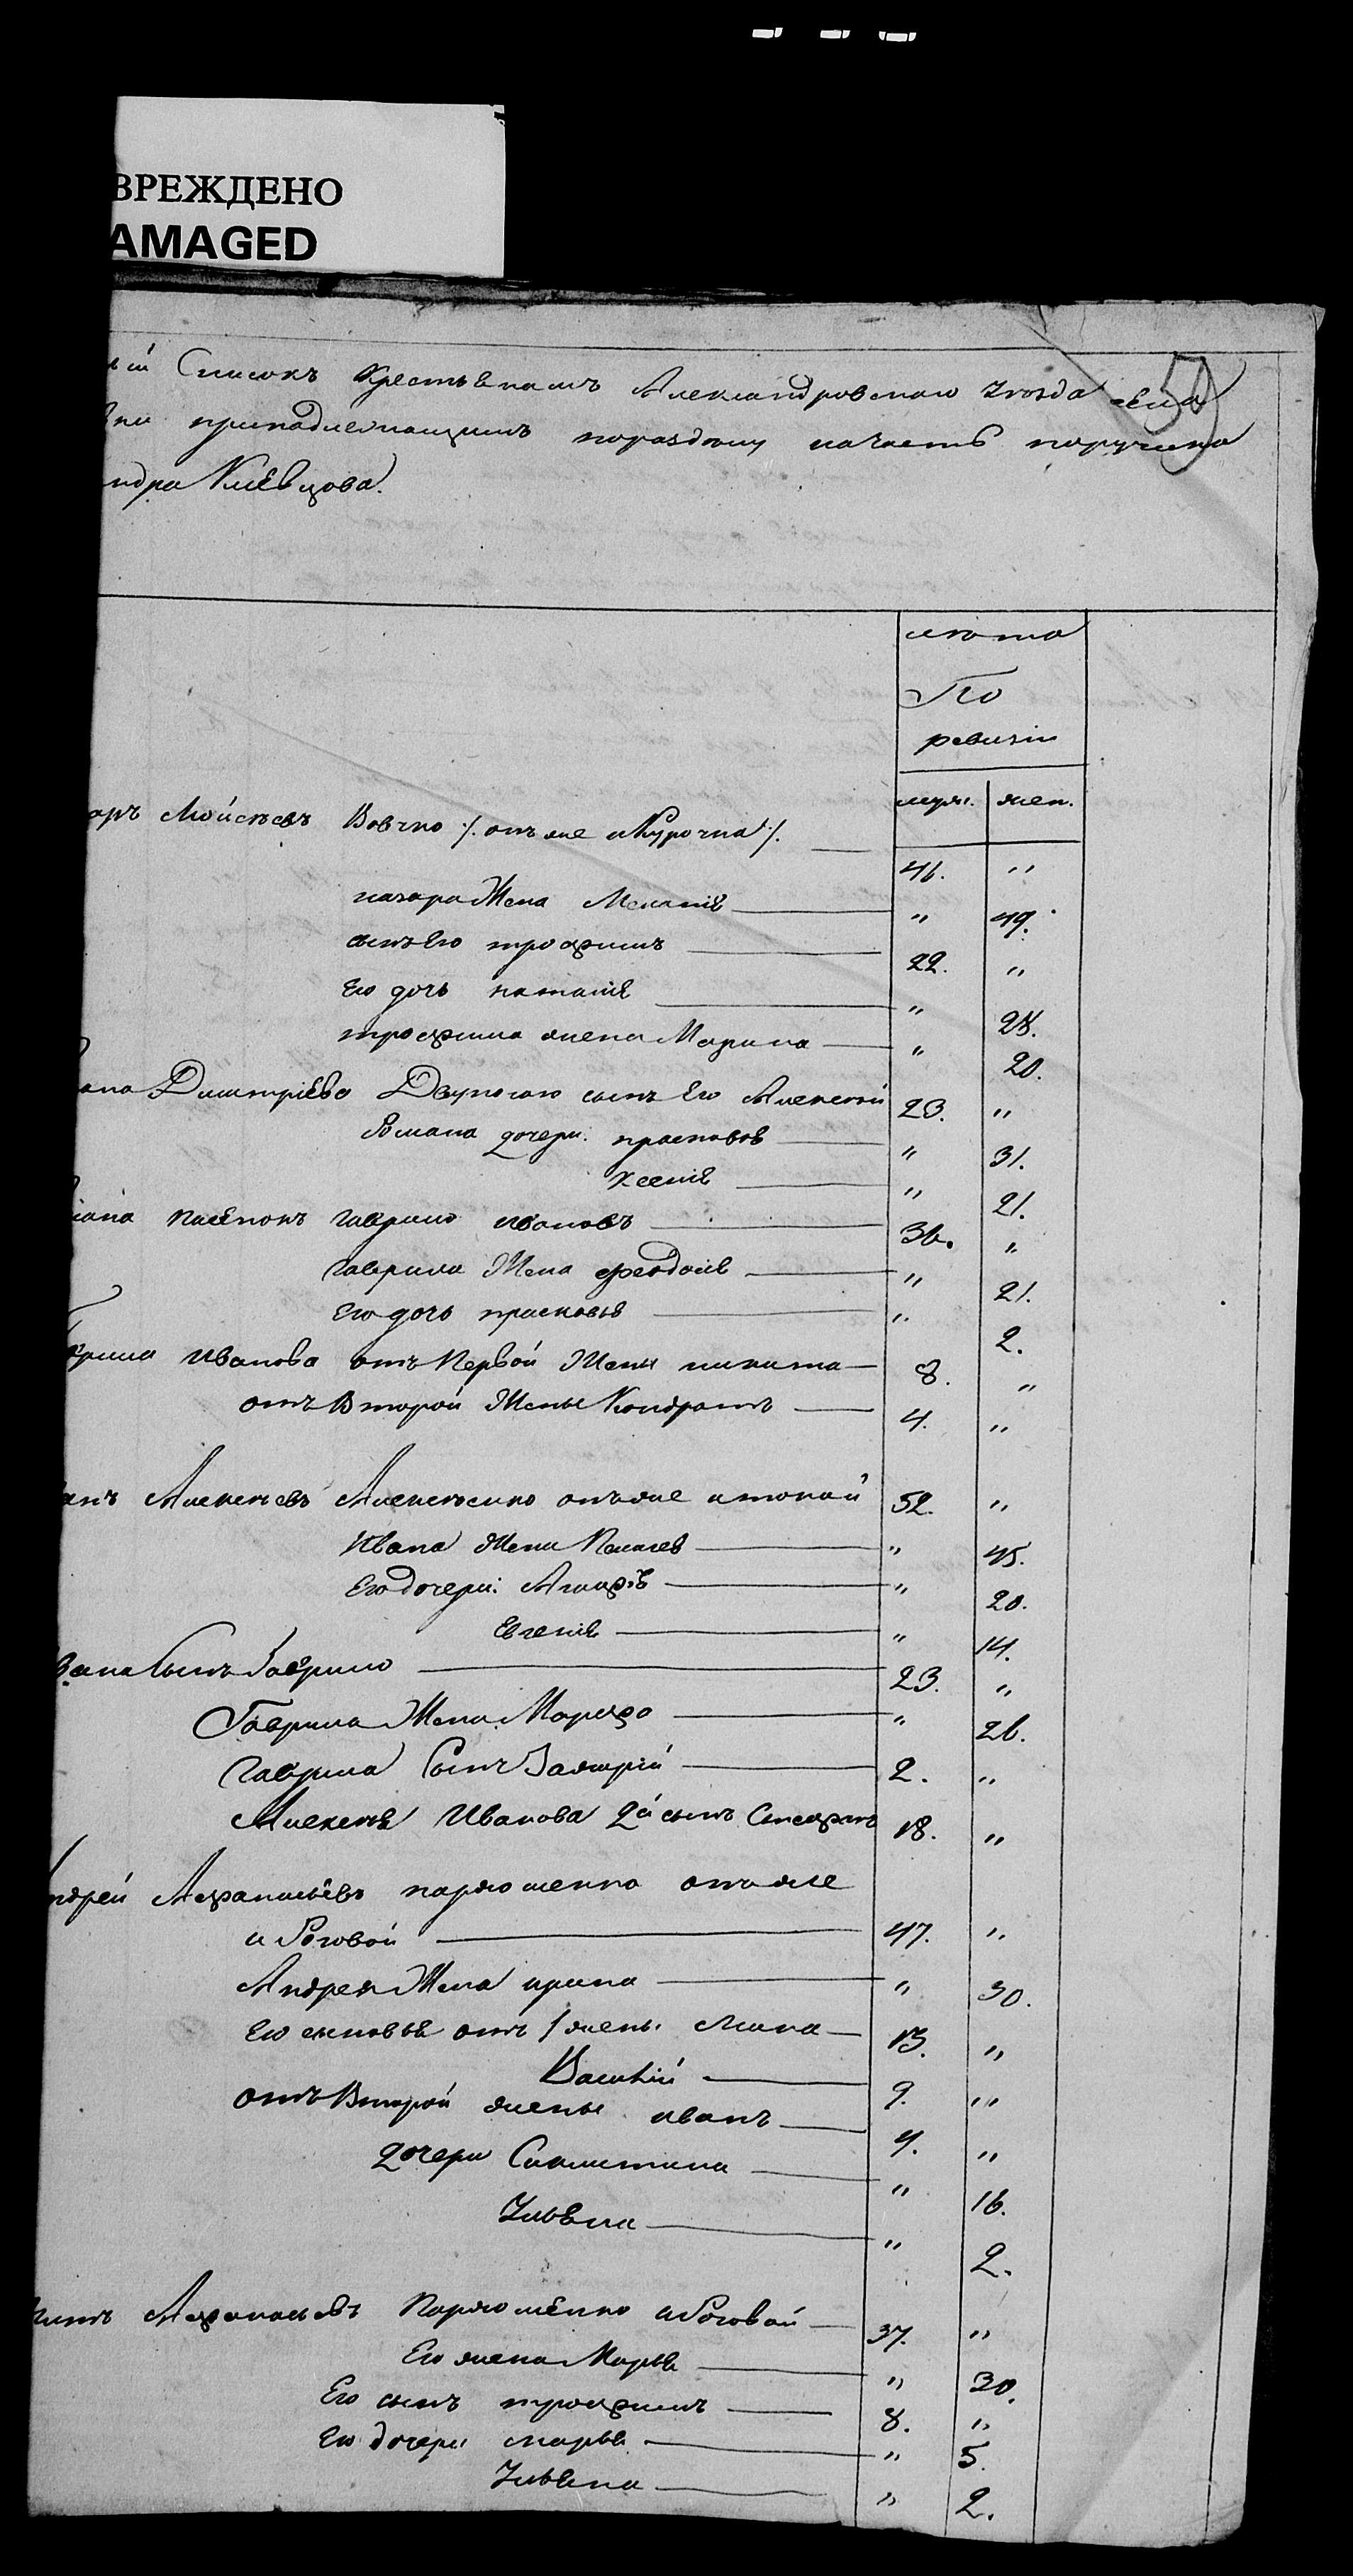 ВРЕЖДЕНО
AMAGED
59
ый Списокъ Крестьянамъ Александровскаго уезда села
принадлежащимъ по раздѣлу на часть поручика
ндра Клевцова.
лѣта
По
ревизіи
муж. жен.
аръ Мойсѣевъ Вовчко /: онъ же и Курочка :/ 46. "
назара Жена Меланія " 49.
сынъ Его трофимъ 22. "
Его дочь наталія " 28.
трофима жена Марина " 20.
мана Дмитріева Двуногаго сынъ Его Алексѣй 23. "
Романа дочери: прасковья " 31.
Ксенія " 21.
пасѣнокъ гаврило ивановъ 36. "
гаврила Жена феодосія " 21.
Его дочь прасковья " 2.
аврила Иванова отъ Первой Жены никита 8. "
отъ Второй Жены Кондратъ 4. "
анъ Алексѣевъ Алексѣенко онъ же и токай 52. "
Ивана Жена Пелагея " 45.
Его дочери: Агафія " 20.
Евгенія " 14.
вана Сынъ Гаврило 23. "
Гаврила Жена Марфа " 26.
Гаврила Сынъ Захарій 2. "
Алексѣя Иванова 2й сынъ Стефанъ 18. "
ндрей Афанасьевъ пархоменко онъ же
и Роговой 47. "
Андрея Жена ирина " 30.
Его сыновья отъ 1 жены Лука 13. "
Василій 9. "
отъ Второй жены иванъ 4. "
дочери " 16.
Ульяна " 2.
Афанасьевъ Пархоменко и Роговой 37. "
Его жена Марья " 30.
Его сынъ трофимъ 8. "
Его дочери марья " 5.
Ульяна " 2.